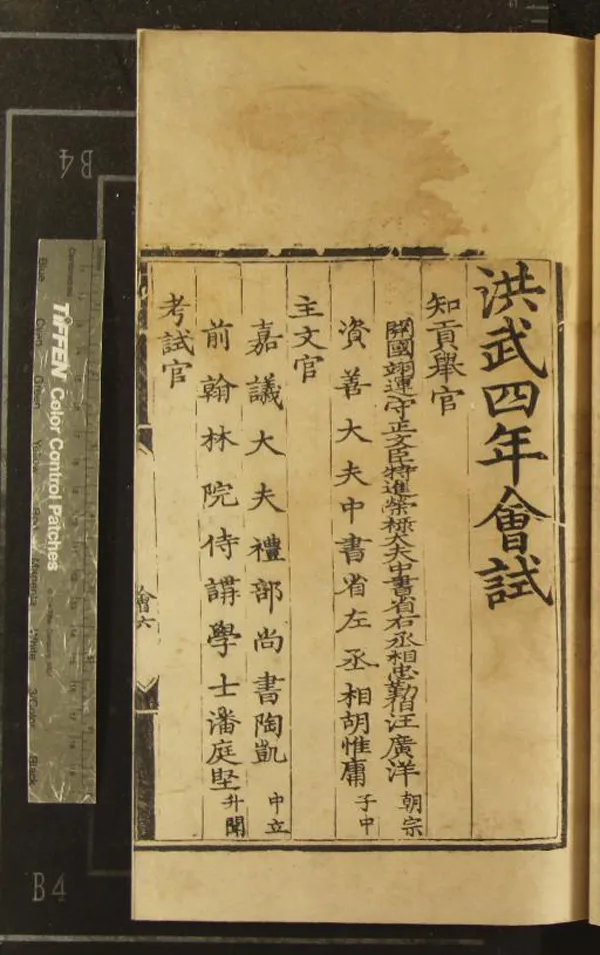 洪武四年會試
知貢舉官
開國翊運守正文臣特進榮祿大夫中書省右丞相忠勤伯汪廣洋朝宗
資善大夫中書省左丞相胡惟庸子中
主文官
嘉議大夫禮部尚書陶凱中立
前翰林院侍講學士潘庭堅升聞
考試官
會六
TIFFEN Color Control Patches
Blue
Cyan
Green
Yellow
Magenta
White
3/Color
Black
B4
B4